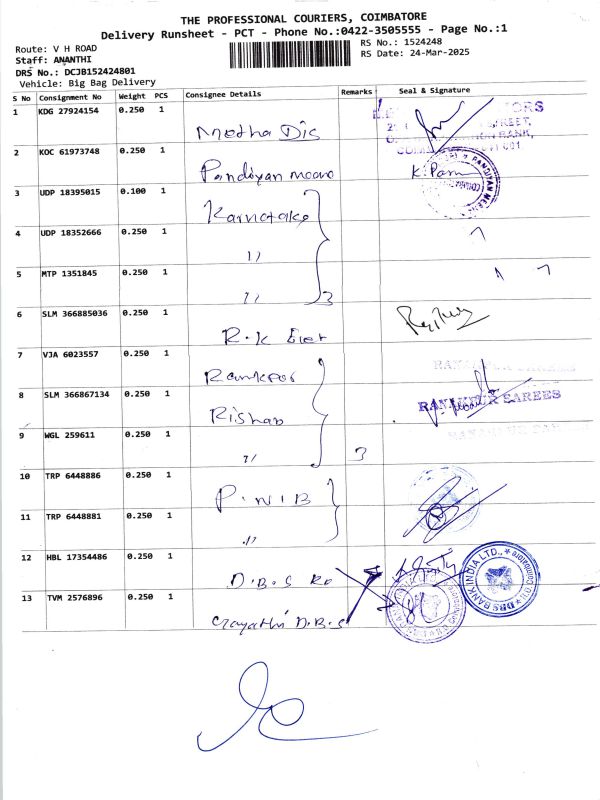 THE PROFESSIONAL COURIERS, COIMBATORE
Delivery Runsheet - PCT - Phone No.:0422-3505555 - Page No.:1
Route: V H ROAD
Staff: ANANTHI
DRS No.: DCJB152424801
Vehicle: Big Bag Delivery
RS No.: 1524248
RS Date: 24-Mar-2025
S No Consignment No Weight PCS Consignee Details Remarks Seal & Signature
1 KDG 27924154 0.250 1 Metha Dis
2 KOC 61973748 0.250 1 Pandiyan
3 UDP 18395015 0.100 1 Karnataka
4 UDP 18352666 0.250 1 11
5 MTP 1351845 0.250 1 11 3
6 SLM 366885036 0.250 1 R.K
7 VJA 6023557 0.250 1
8 SLM 366867134 0.250 1 Rishab RANAKPUR SAREES
9 WGL 259611 0.250 1 11 3
10 TRP 6448886 0.250 1 P.N.B
11 TRP 6448881 0.250 1 11
12 HBL 17354486 0.250 1 D.B.S
DBS BANK INDIA LTD.,
13 TVM 2576896 0.250 1 Gayathri D.B.S